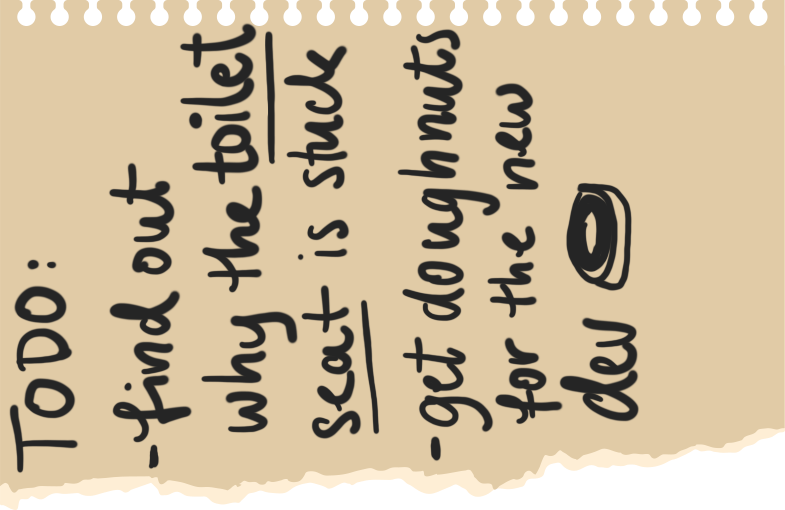 TODO:
-find out
why the toilet
seat is stuck
-get doughnuts
for the new
dev